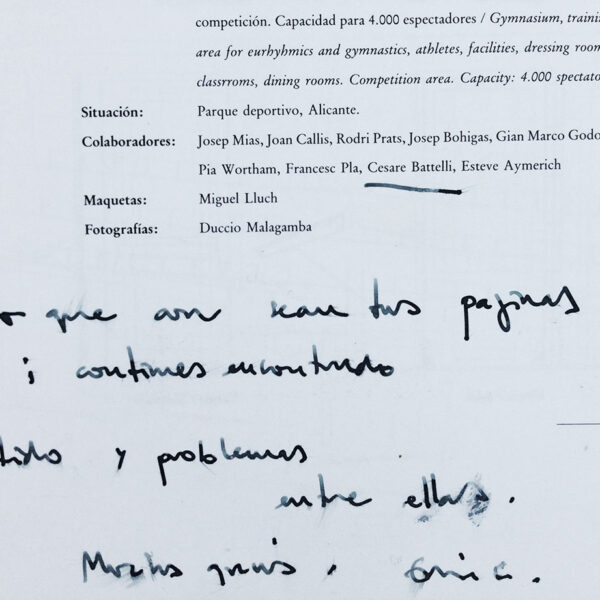 competición. Capacidad para 4.000 espectadores / Gymnasium, traini
area for eurhyhmics and gymnastics, athletes, facilities, dressing room
classrroms, dining rooms. Competition area. Capacity: 4.000 spectato
Situación: Parque deportivo, Alicante.
Colaboradores: Josep Mias, Joan Callis, Rodri Prats, Josep Bohigas, Gian Marco Godo
Pia Wortham, Francesc Pla, Cesare Battelli, Esteve Aymerich
Maquetas: Miguel Lluch
Fotografías: Duccio Malagamba
que aun sean tus paginas
i continues encontrado
tido y problemas
entre ellas.